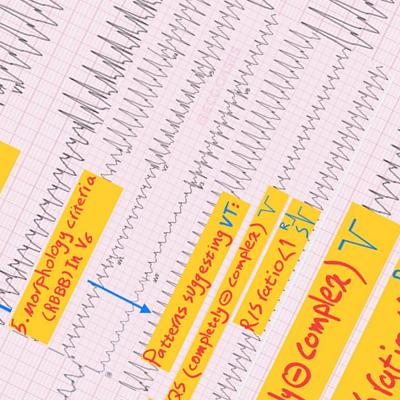 5. morphology criteria
(RBBB) In V6
Patterns suggesting VT:
QS (completely ⊖ complex)
R/S ratio <1 R/S
ly ⊖ complex)
ratio